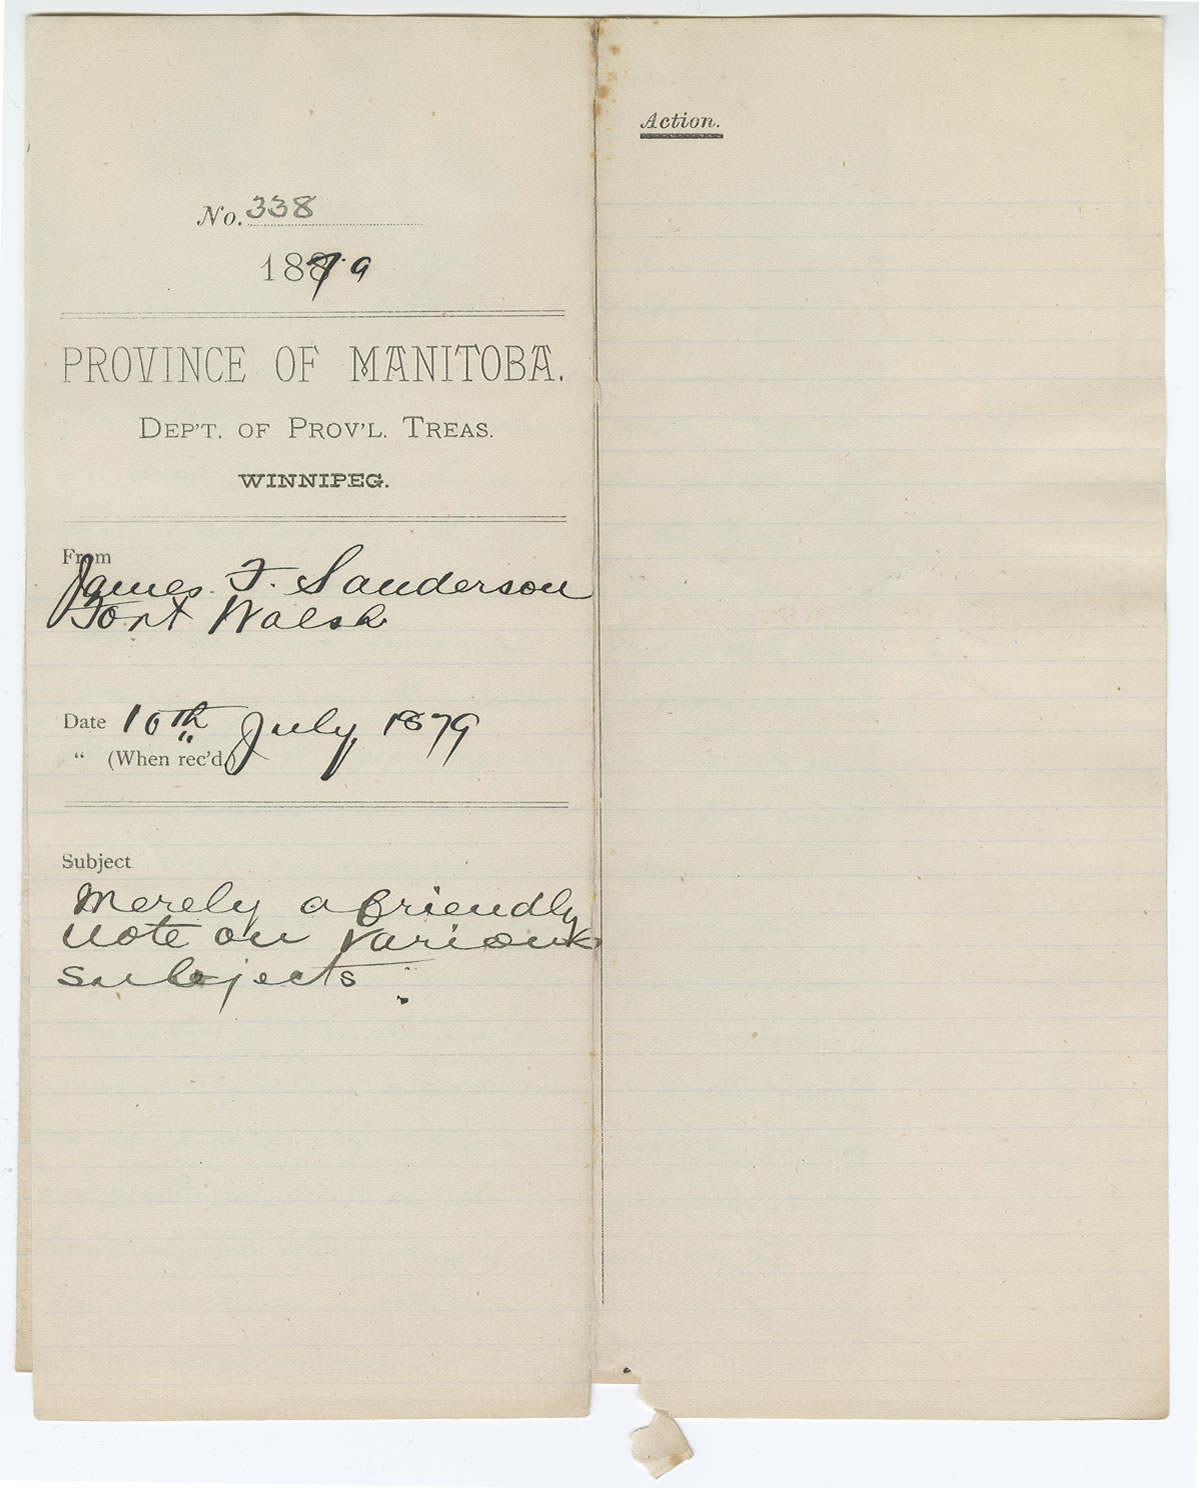 No. 338
1879
PROVINCE OF MANITOBA.
DEP'T. OF PROV'L. TREAS.
WINNIPEG.
From
James F. Sanderson
Fort Walsh
Date 10th July 1879
" (When rec'd)
Subject
Merely a friendly
note on various
subjects.
Action.